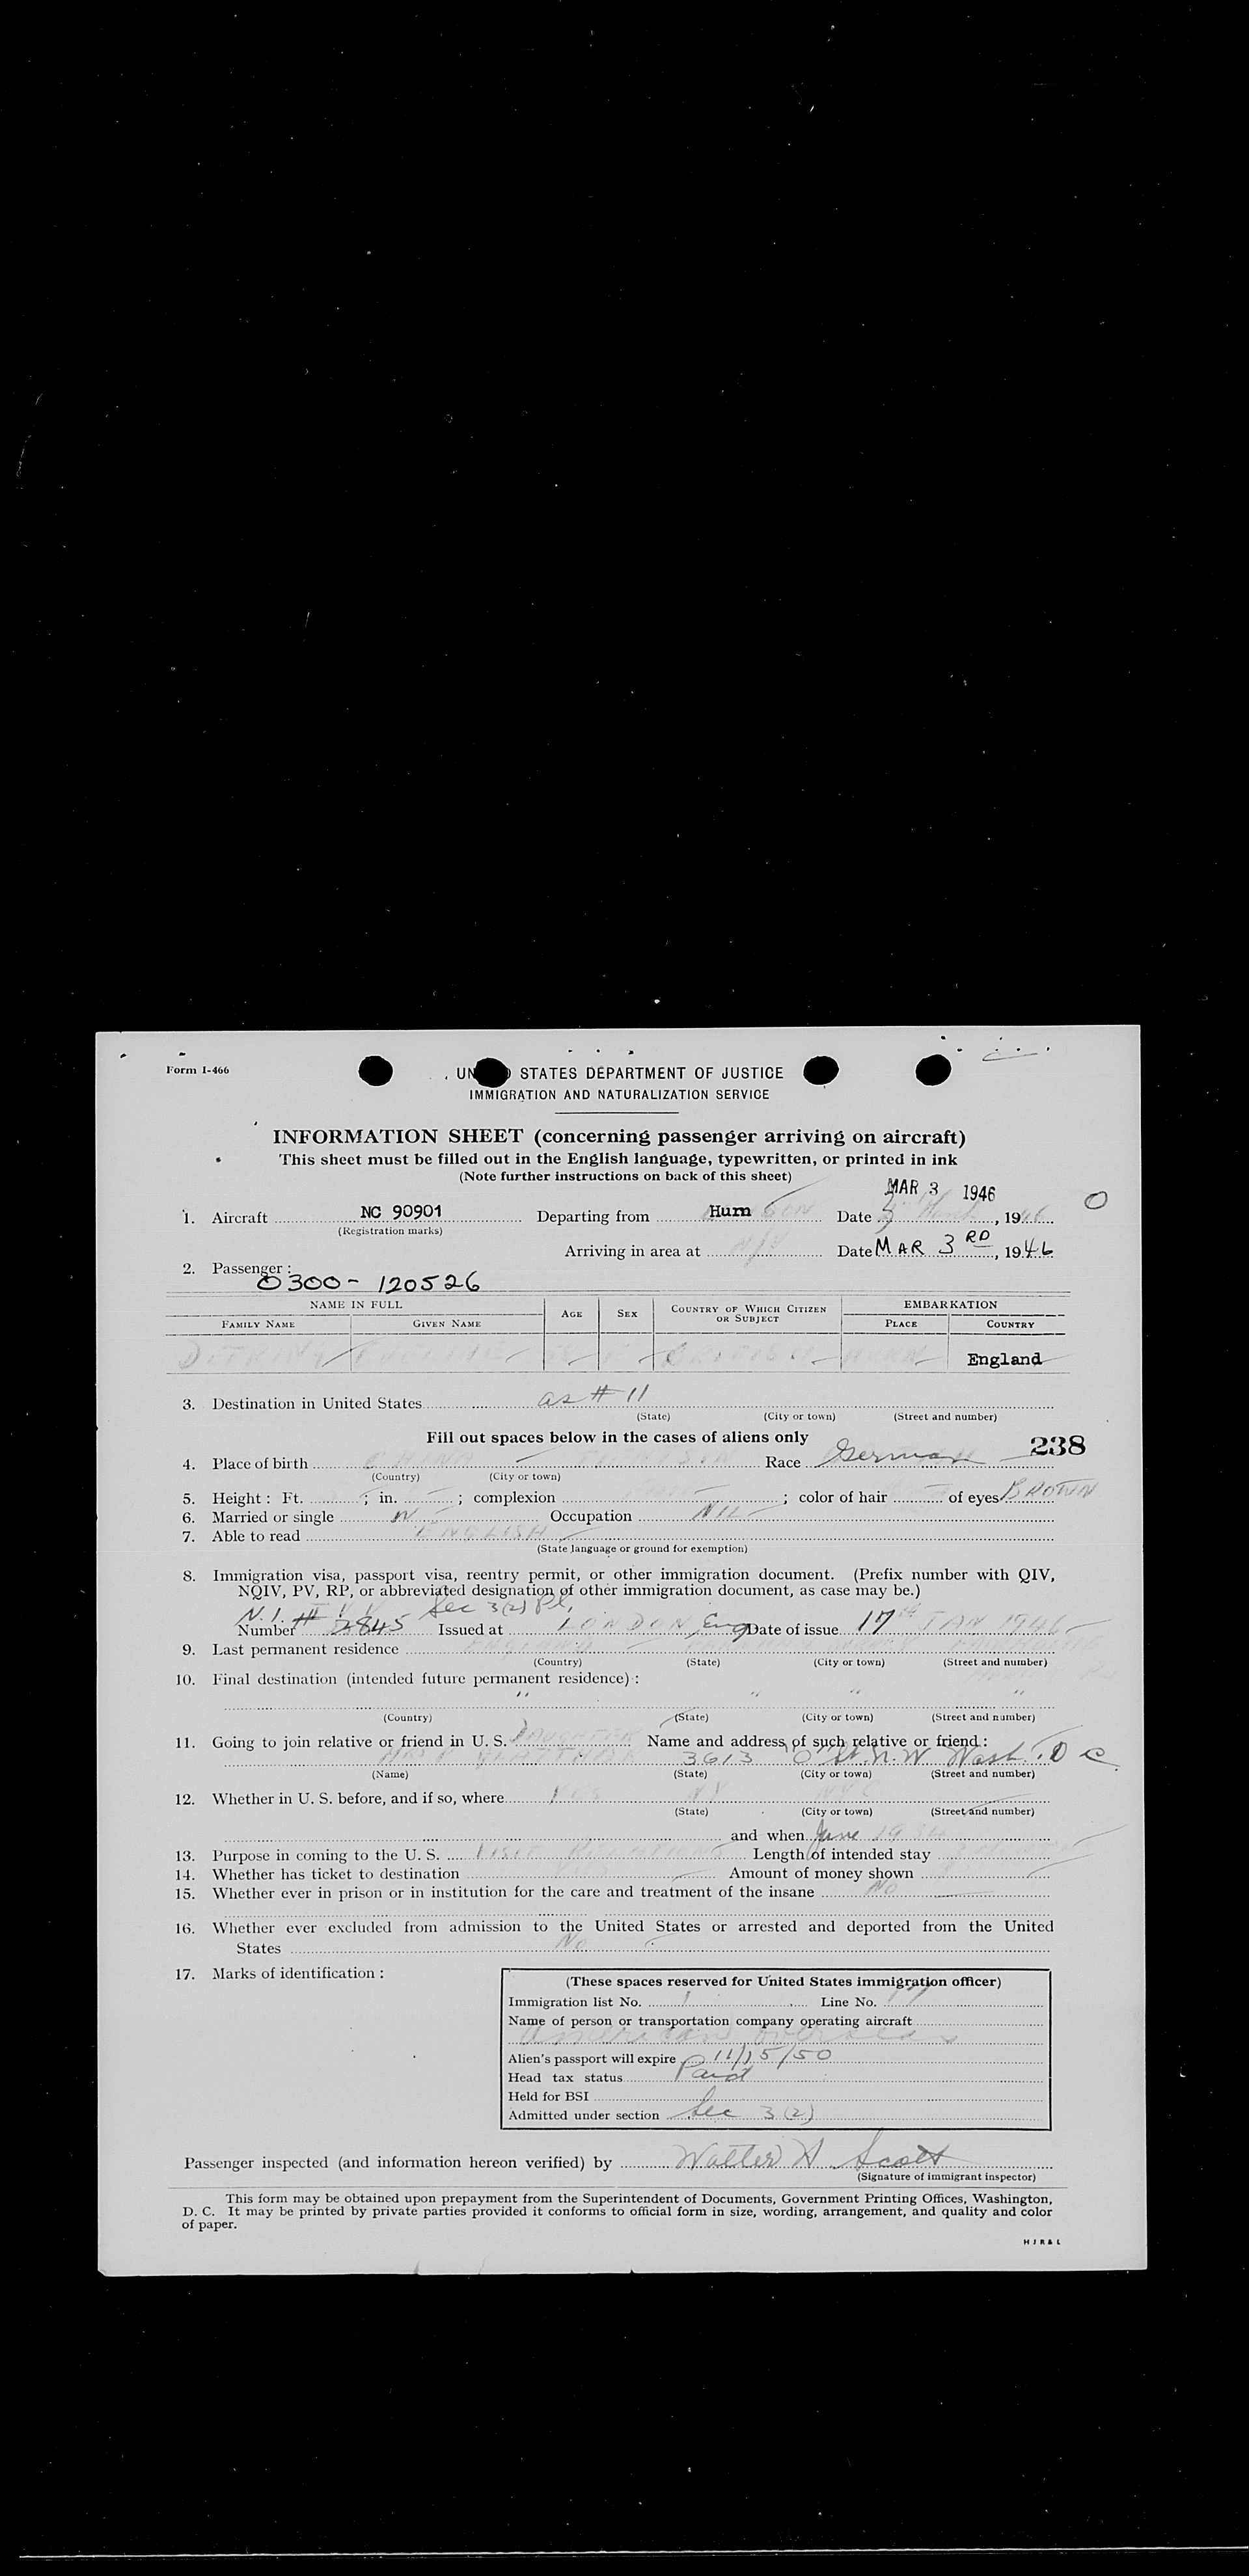 Form I-466
UN STATES DEPARTMENT OF JUSTICE
IMMIGRATION AND NATURALIZATION SERVICE
INFORMATION SHEET (concerning passenger arriving on aircraft)
This sheet must be filled out in the English language, typewritten, or printed in ink
(Note further instructions on back of this sheet)
MAR 3 1946
1. Aircraft NC 90901 Departing from Hurn Date 3 , 1946
(Registration marks)
Arriving in area at Date MAR 3 RD, 1946
2. Passenger:
0300- 120526
NAME IN FULL AGE SEX COUNTRY OF WHICH CITIZEN OR SUBJECT EMBARKATION
FAMILY NAME GIVEN NAME PLACE COUNTRY
BRITISH England
3. Destination in United States as # 11
(State) (City or town) (Street and number)
Fill out spaces below in the cases of aliens only
238
4. Place of birth Race German
(Country) (City or town)
5. Height: Ft. ; in. ; complexion ; color of hair of eyes BROWN
6. Married or single W Occupation NIL
7. Able to read ENGLISH
(State language or ground for exemption)
8. Immigration visa, passport visa, reentry permit, or other immigration document. (Prefix number with QIV,
NQIV, PV, RP, or abbreviated designation of other immigration document, as case may be.)
Sec 3(2)
Number # 2845 Issued at LONDON, Eng Date of issue 17th JAN 1946
9. Last permanent residence
(Country) (State) (City or town) (Street and number)
10. Final destination (intended future permanent residence):
" " " "
(Country) (State) (City or town) (Street and number)
11. Going to join relative or friend in U. S. DAUGHTER Name and address of such relative or friend:
3613 "O" St. N. W. Wash. D C
(Name) (State) (City or town) (Street and number)
12. Whether in U. S. before, and if so, where Yes NY
(State) (City or town) (Street and number)
and when June 19
13. Purpose in coming to the U. S. Visit Length of intended stay
14. Whether has ticket to destination Amount of money shown
15. Whether ever in prison or in institution for the care and treatment of the insane No
16. Whether ever excluded from admission to the United States or arrested and deported from the United
States No
17. Marks of identification:
(These spaces reserved for United States immigration officer)
Immigration list No. 1 Line No.
Name of person or transportation company operating aircraft
American Overseas
Alien's passport will expire 11/15/50
Head tax status Paid
Held for BSI
Admitted under section Sec 3(2)
Passenger inspected (and information hereon verified) by Walter H Scott
(Signature of immigrant inspector)
This form may be obtained upon prepayment from the Superintendent of Documents, Government Printing Offices, Washington,
D. C. It may be printed by private parties provided it conforms to official form in size, wording, arrangement, and quality and color
of paper.
H J R & L